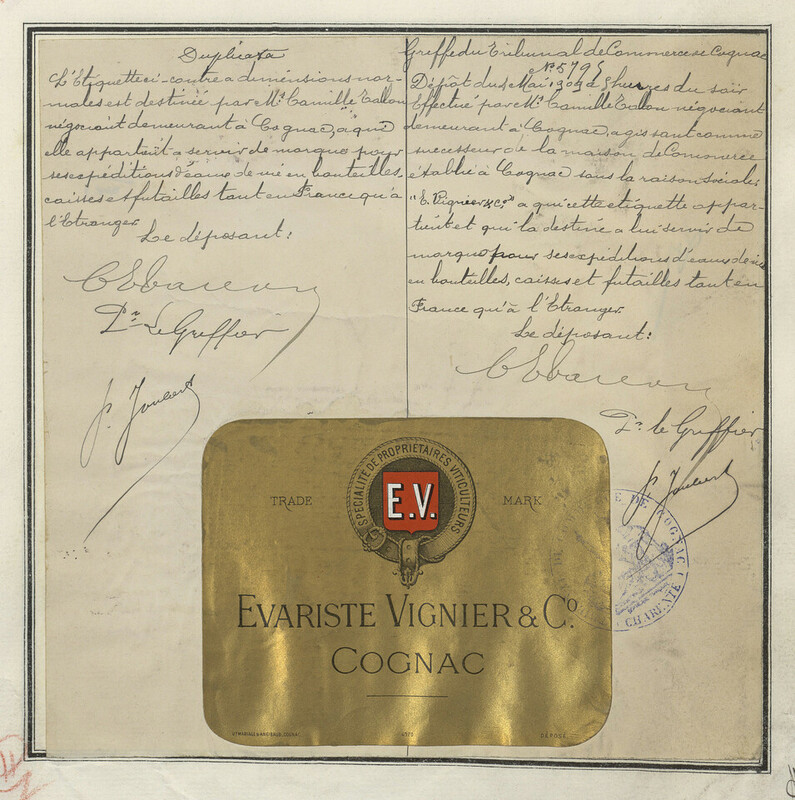 Duplicata
L'Etiquette ci-contre a dimensions nor-
males est destinée par Mr. Camille Tallon
négociant demeurant à Cognac, a qui
elle appartient a servir de marque pour
ses expéditions d'eaux de vie en bouteilles,
caisses et futailles tant en France qu'à
l'Etranger
Le déposant:
Pr. Le Greffier
P. Joubert
Greffe du Tribunal de Commerce de Cognac
No. 5795
Dépôt du Mai 1903 à heures du soir
Effectué par Mr. Camille Tallon négociant
demeurant à Cognac, agissant comme
successeur de la maison de Commerce
établie à Cognac sous la raison sociale:
"E. Vignier & Co." a qui cette etiquette appar-
tient et qui la destine a lui servir de
marque pour ses expéditions d'eaux de vie
en bouteilles, caisses et futailles tant en
France qu'à l'Etranger
Le déposant:
Pr. le Greffier
P. Joubert
DE COGNAC
CHARENTE
SPÉCIALITÉ DE PROPRIÉTAIRES VITICULTEURS
TRADE E.V. MARK
EVARISTE VIGNIER & Co.
COGNAC
DÉPOSÉ